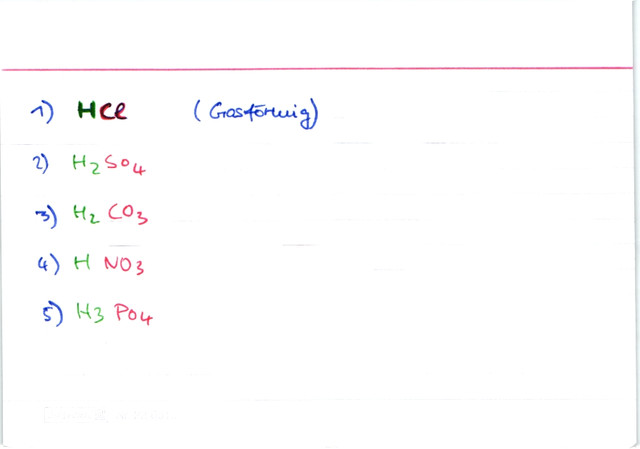 1) HCl (Gasförmig)
2) H2SO4
3) H2 CO3
4) H NO3
5) H3 PO4